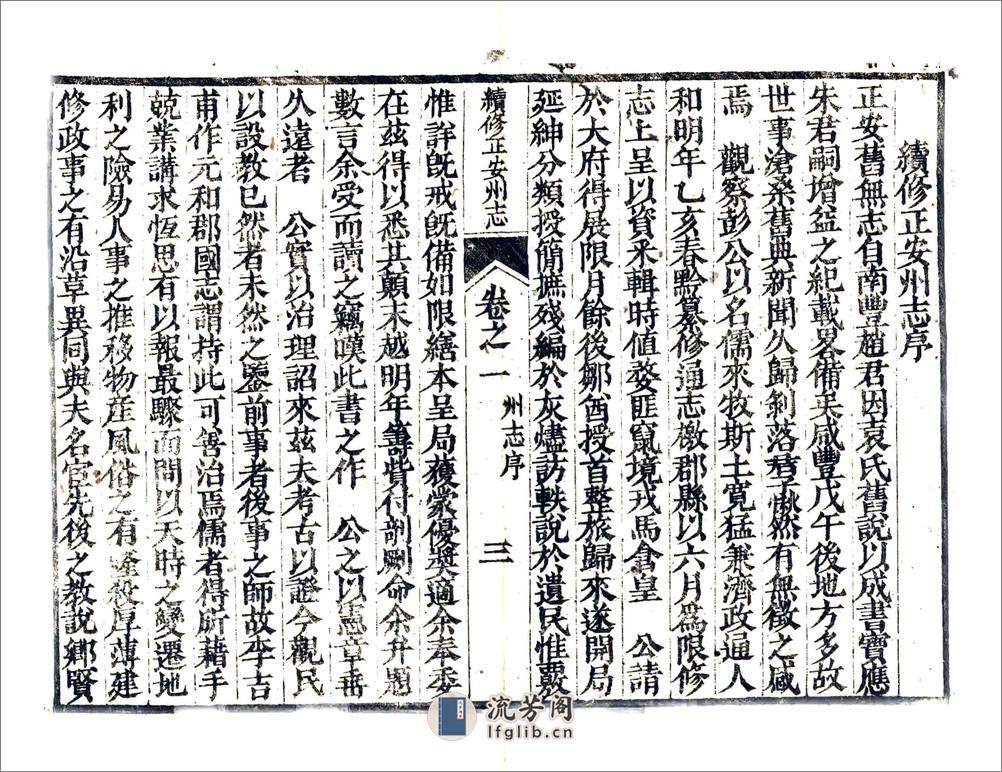 續修正安州志序
正安舊無志自南豐趙君因袁氏舊說以成書寶應
朱君嗣增益之紀載畧備矣咸豐戊午後地方多故
世事滄桑舊典新聞久歸剝落耆 愀然有無徵之感
焉 觀察彭公以名儒來牧斯土寬猛兼濟政通人
和明年乙亥春黔纂修通志檄郡縣以六月爲限修
志上呈以資采輯時值婺匪竄境戎馬倉皇 公請
於大府得展限月餘後鄒酋授首整旅歸來遂開局
延紳分類授簡摭殘編於灰燼訪軼說於遺民惟覈
惟詳旣戒旣備如限繕本呈局獲蒙優奬適余奉委
在茲得以悉其顛末越明年籌貲付剞劂命余弁題
數言余受而讀之竊嘆此書之作 公之以憲章垂
久遠者 公實以治理詔來茲夫考古以證今觀民
以設教已然者未然之鑒前事者後事之師故李吉
甫作元和郡國志謂持此可善治焉儒者得所藉手
兢業講求恆思有以報最驟而問以天時之變遷地
利之險易人事之推移物產風俗之有隆殺厚薄建
修政事之有沿革異同與夫名宦先後之教說鄉賢
續修正安州志
卷之一
州志序
三
流芳阁
lfglib.cn